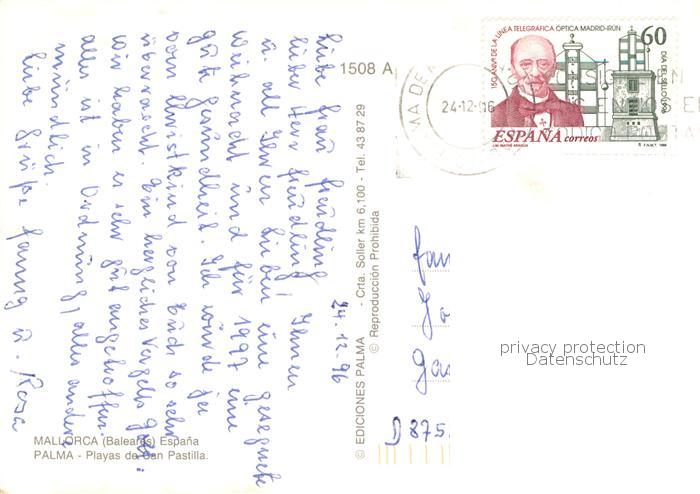 24.12.96
Liebe Frau Freudling
lieber Herr Freudling! Ihnen
u. all Ihren Lieben eine gesegnete
Weihnacht und für 1997 eine
gute Gesundheit. Ich wurde ja
vom Christkind von Euch so sehr
überrascht. Ein herzliches Vergelts Gott.
Wir haben es sehr gut angetroffen.
alles ist in Ordnung, alles andere
mündlich.
Liebe Grüße Fanny u. Rosa
MALLORCA (Baleares) España
PALMA - Playas de San Pastilla.
1508 A
© EDICIONES PALMA - Crta. Soller km 6,100 - Tel. 43 87 29
© Reproducción Prohibida
150 ANIVº DE LA LINEA TELEGRAFICA OPTICA MADRID-IRÚN
60
DIA DEL SELLO
ESPAÑA correos
J.M. MATHÉ ARAGUA
F.N.M.T. 1996
MA DE
24-12-96
Fam
Ga
D 875
privacy protection
Datenschutz